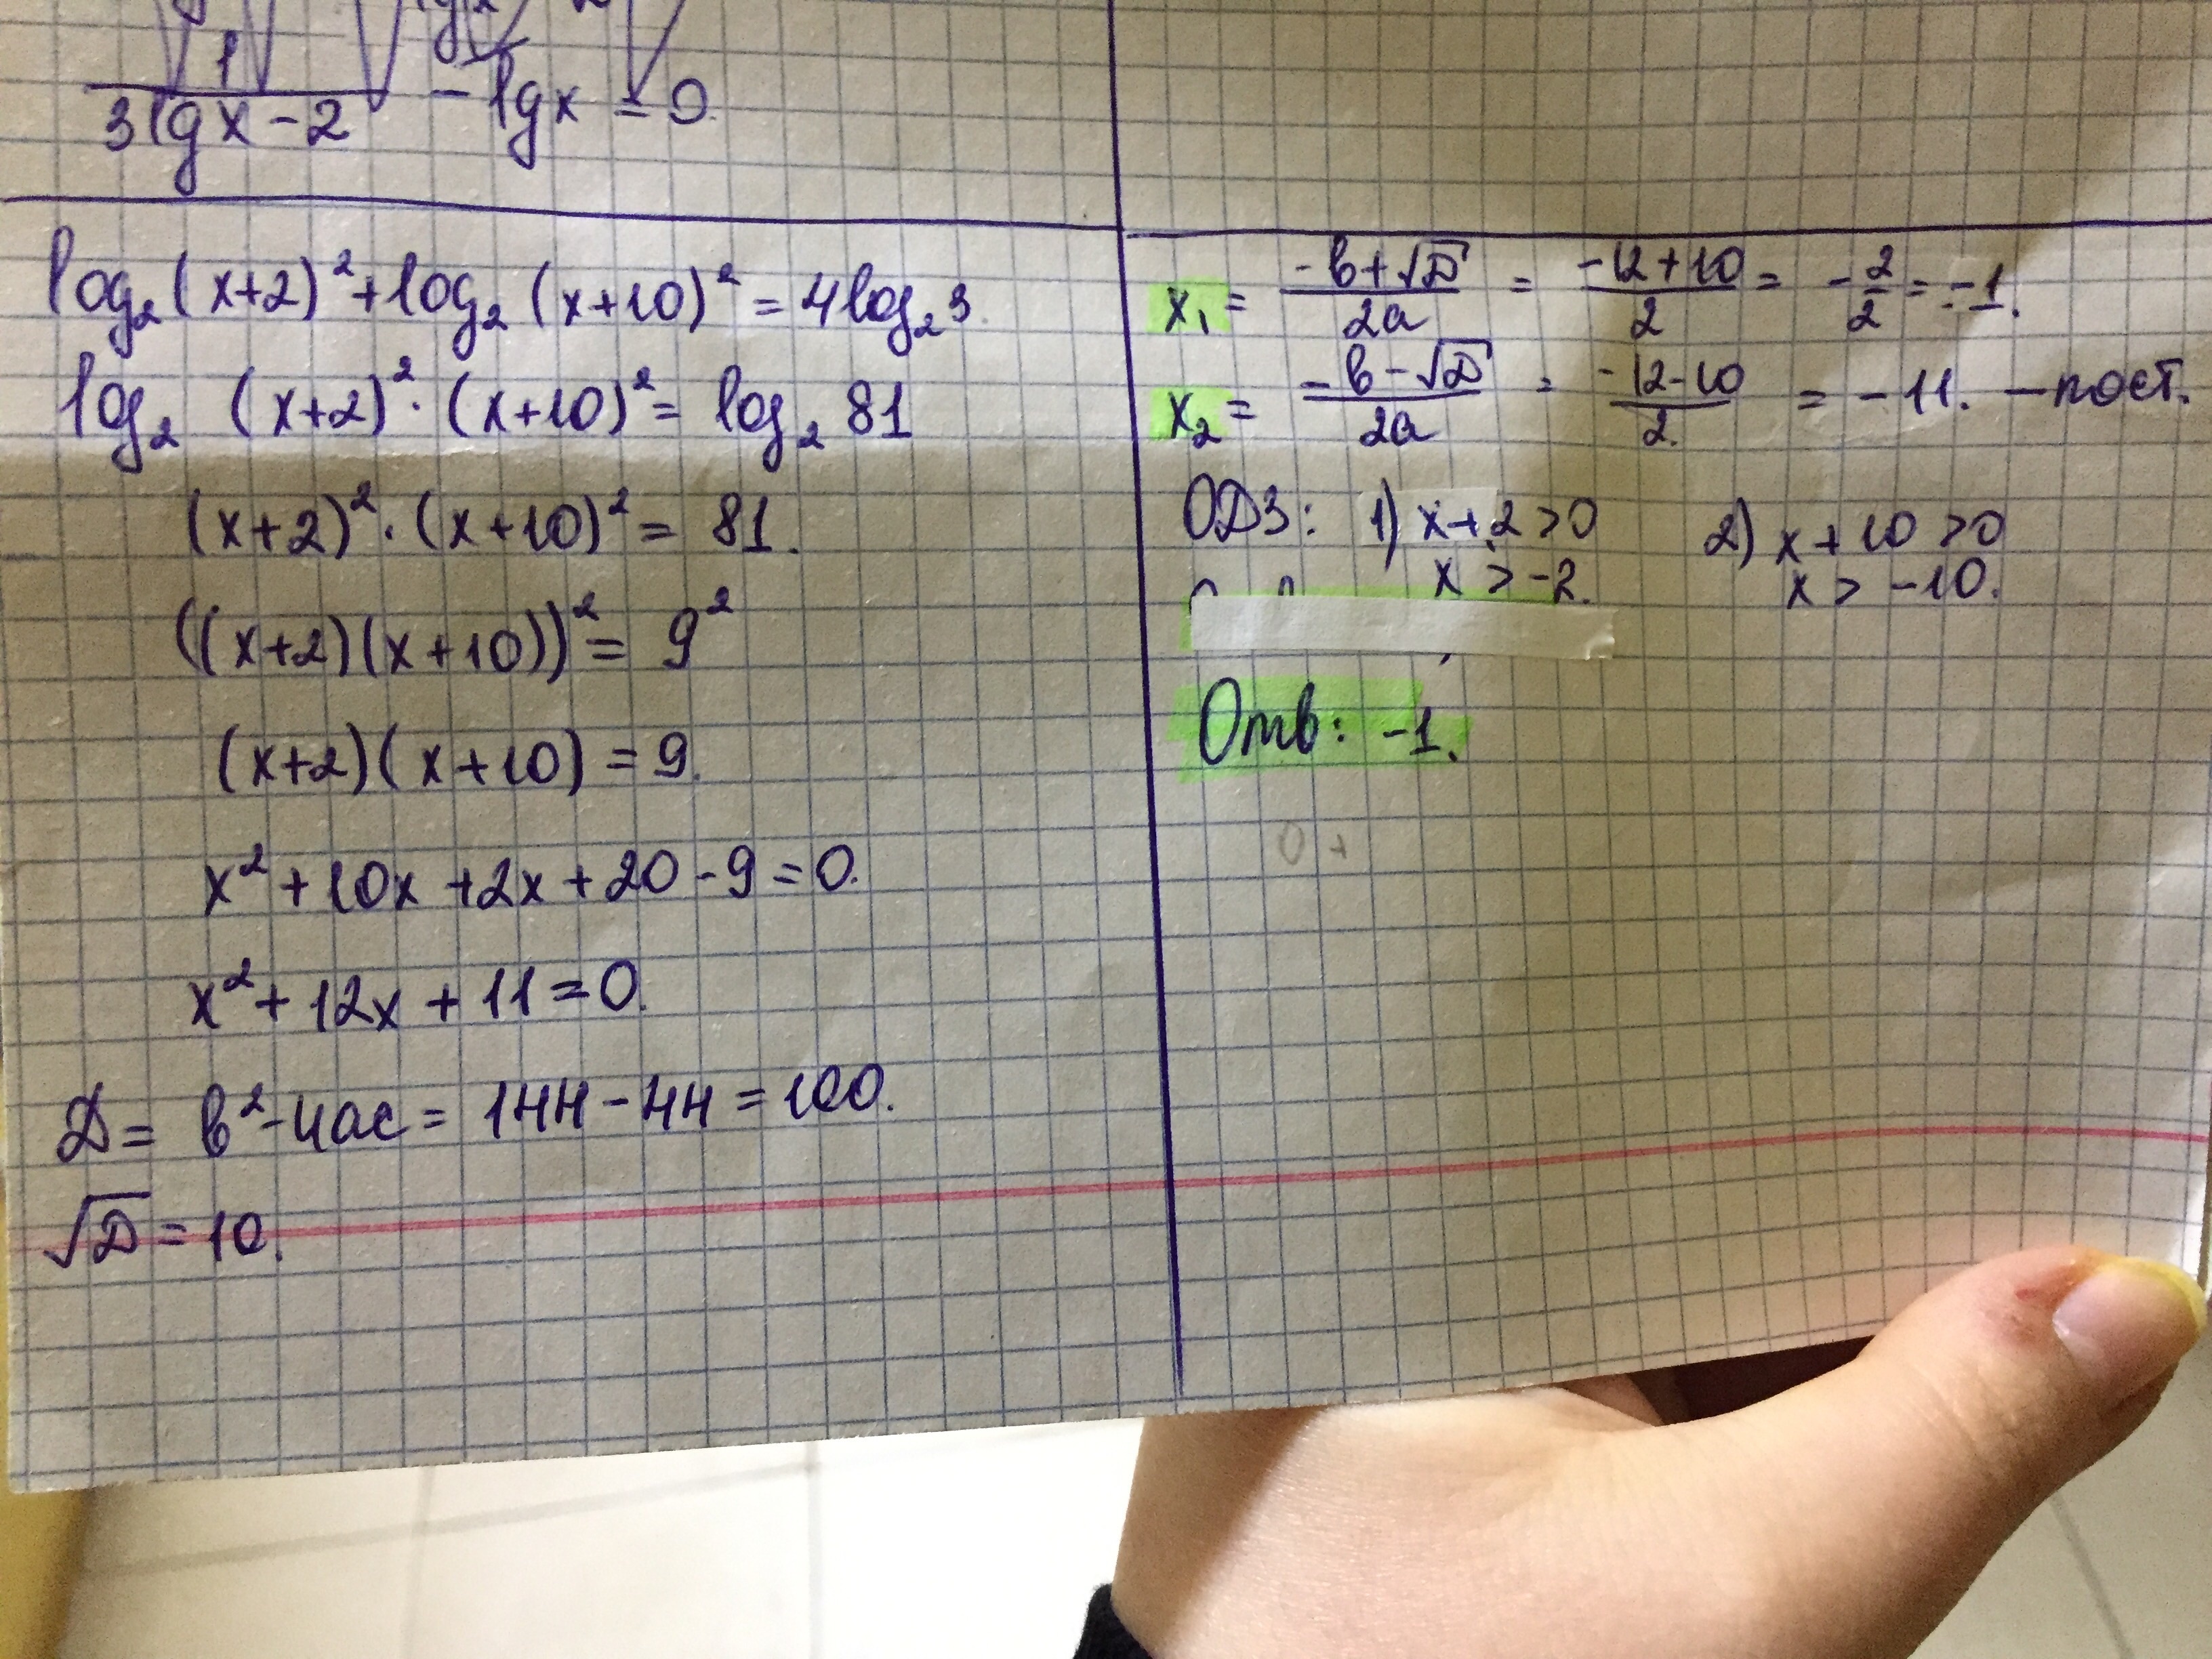 1
3lgx-2 -lgx = 0.
log₂(x+2)²+log₂(x+10)²=4log₂3
log₂ (x+2)²·(x+10)²= log₂ 81
(x+2)²·(x+10)²= 81.
((x+2)(x+10))²= 9²
(x+2)(x+10)=9.
x²+10x+2x+20-9=0.
x²+12x+11=0.
D= b²-4ac= 144-44=100.
√D=10.
x₁= -b+√D/2a = -12+10/2 = -2/2=-1.
x₂= -b-√D/2a = -12-10/2. = -11. -пост.
ОДЗ: 1) x+2>0 2) x+10>0
x>-2. x>-10.
Отв: -1.
0+